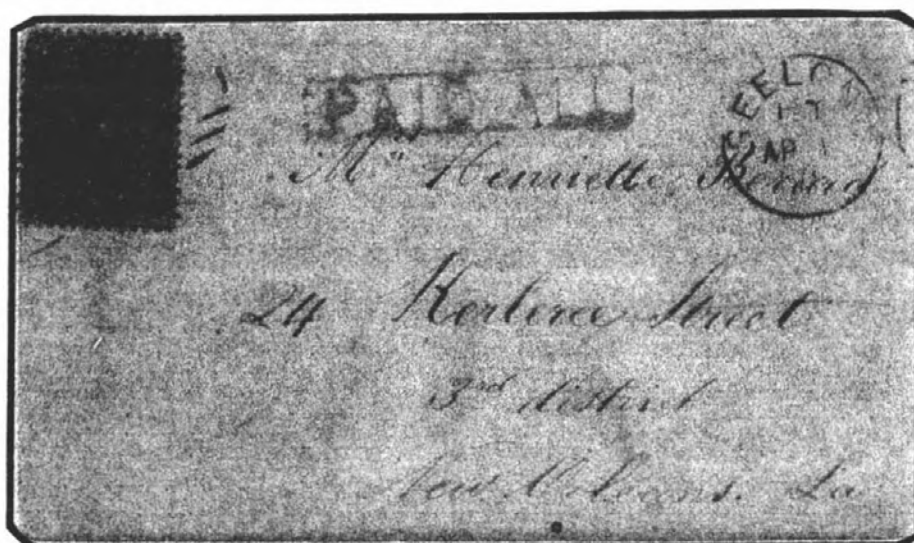 PAID ALL
GEELO
AP
Mrs Henriette
24 Kerlerec Street
3rd district
New Orleans. La